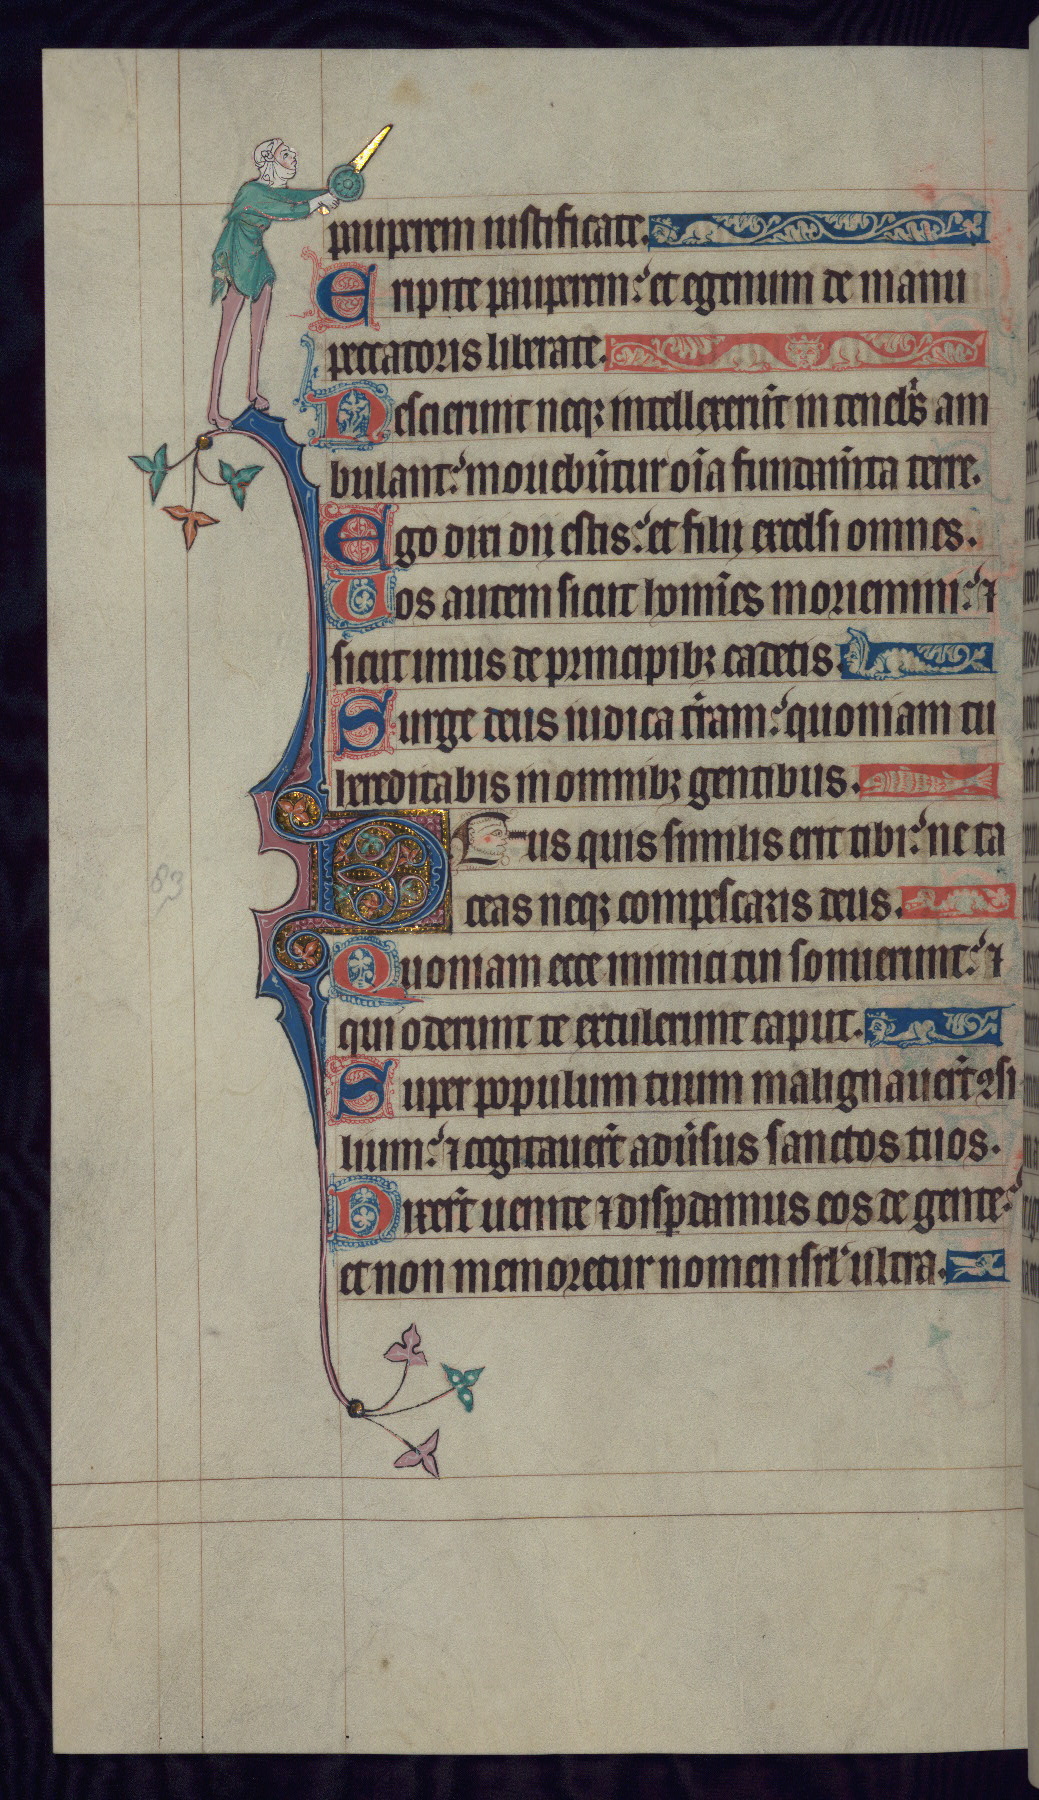 pauperem iustificate.
Eripite pauperem: et egenum de manu
peccatoris liberate.
Nescierunt neqꝫ intellexerūt in tenebr̄s am
bulant: mouebūtur oīa fundamīta terre.
Ego dixi dii estis: et filii excelsi omnes.
Uos autem sicut homīes moriemini: ⁊
sicut unus de principibꝫ cadetis.
Surge deus iudica tr̄am: quoniam tu
hereditabis in omnibꝫ gentibus.
DEus quis similis erit tibi: ne ta
ceas neqꝫ compescaris deus.
Quoniam ecce inimici tui sonuerunt: ⁊
qui oderunt te extulerunt caput.
Super populum tuum malignauer̄t ꝯsi
lium: ⁊ cogitauer̄t adūsus sanctos tuos.
Dixer̄t uenite ⁊ disꝑdamus eos de gente:
et non memoretur nomen isrl̄ ultra.
83